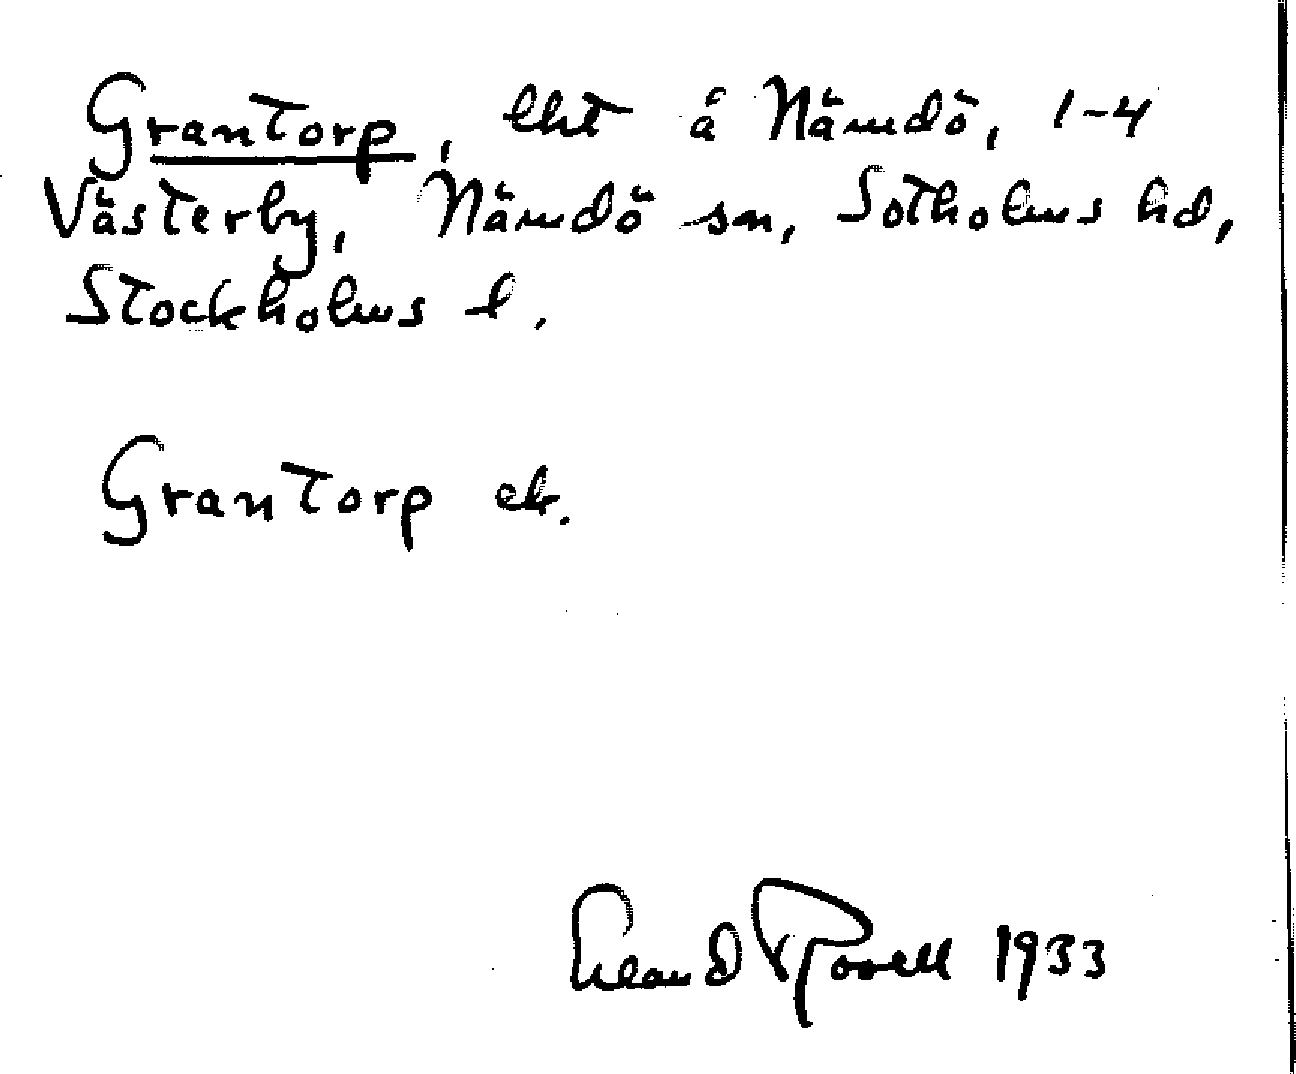 Grantorp, lht å Nämdö, 1-4
Västerby, Nämdö sn, Sotholms hd,
Stockholms l.
Grantorp ek.
1933